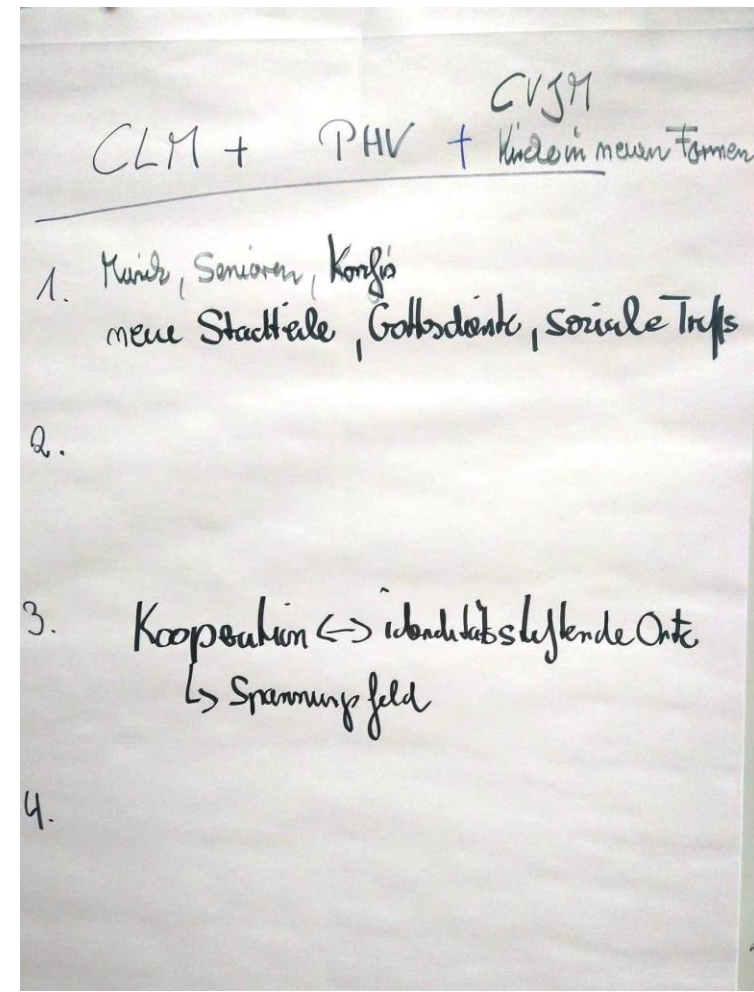 CVJM
CLM + PHV + Kirche in neuen Formen
1. Musik, Senioren, Konfis
neue Stadtteile, Gottesdienste, soziale Treffs
2.
3. Kooperation <-> identitätsstiftende Orte
↳ Spannungsfeld
4.